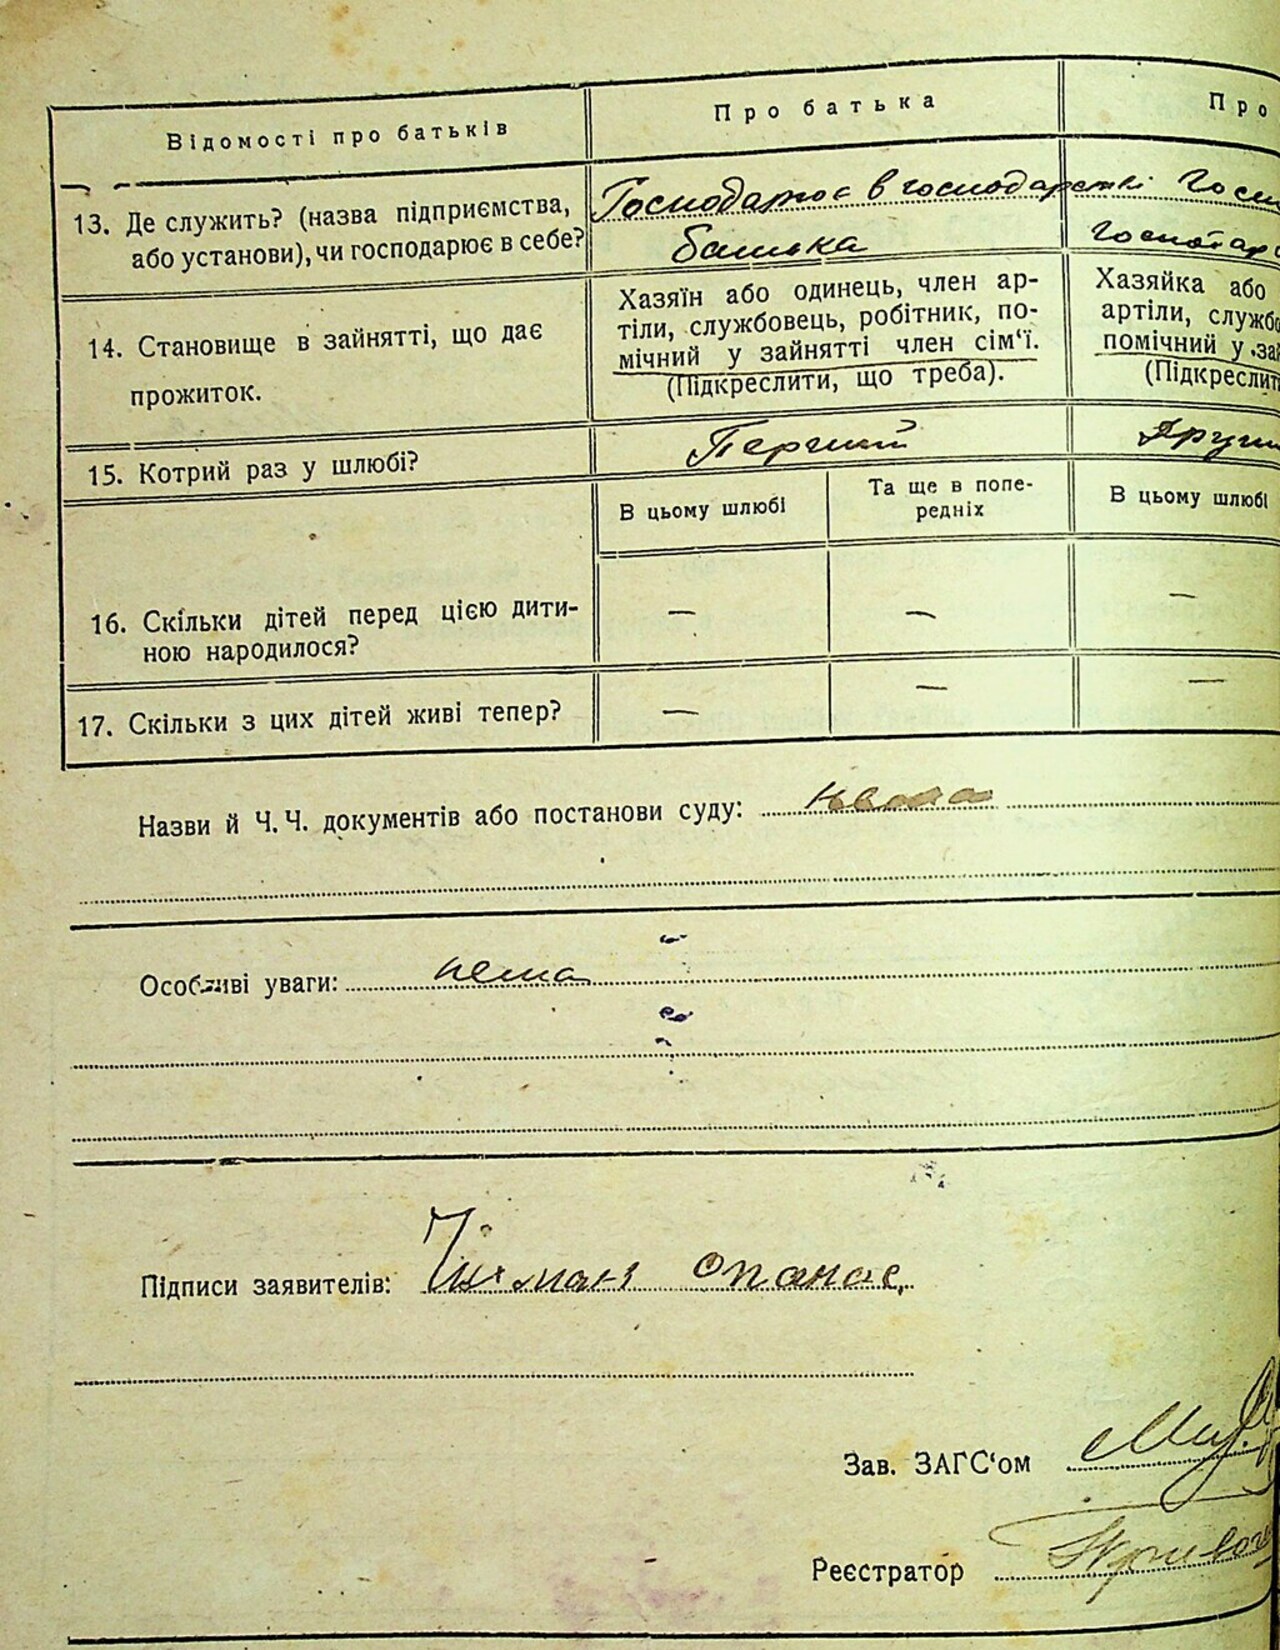 Відомості про батьків
Про батька
Про
13. Де служить? (назва підприємства,
або установи), чи господарює в себе?
Господарює в господарстві
батька
Госп
господар
14. Становище в зайнятті, що дає
прожиток.
Хазяїн або одинець, член ар-
тіли, службовець, робітник, по-
мічний у зайнятті член сім‘ї.
(Підкреслити, що треба).
Хазяйка або
артіли, службо
помічний у зай
(Підкреслит
15. Котрий раз у шлюбі?
Перший
Други
В цьому шлюбі
Та ще в попе-
редніх
В цьому шлюбі
16. Скільки дітей перед цією дити-
ною народилося?
— — —
17. Скільки з цих дітей живі тепер?
— — —
Назви й Ч. Ч. документів або постанови суду:
Особливі уваги: нема
Підписи заявителів: опанас
Зав. ЗАГС‘ом
Реєстратор